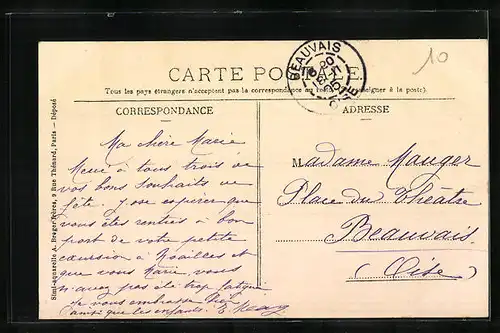 10
BEAUVAIS
OISE
CARTE POSTALE
Tous les pays étrangers n'acceptent pas la correspondance au recto (se renseigner à la poste).
CORRESPONDANCE
ADRESSE
Simi-aquarelle A. Breger Frères, 9 Rue Thénard, Paris — Déposé
Ma chère Marie
Merci à tous trois de
vos bons souhaits de
fête. J'ose espérer que
vous êtes rentrés à bon
port de votre petite
excursion à Noailles et
que vous Marie, vous
n'avez pas été trop fatiguée
Je vous embrasse
ainsi que les enfants. E.
Madame Mauger
Place du Théâtre
Beauvais
(Oise)